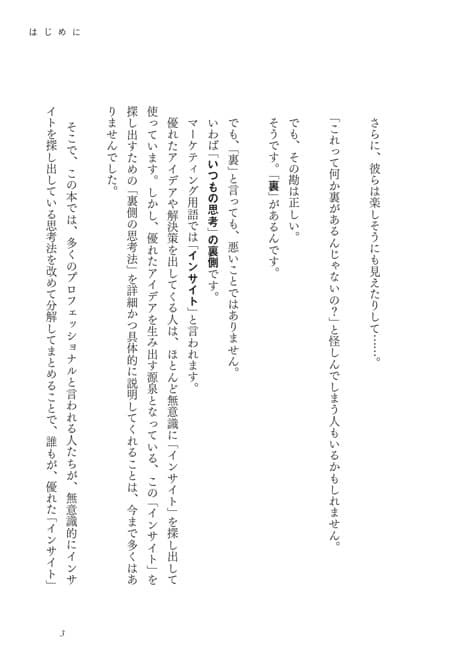 はじめに
さらに、彼らは楽しそうにも見えたりして……。
「これって何か裏があるんじゃないの？」と怪しんでしまう人もいるかもしれません。
でも、その勘は正しい。
そうです。「裏」があるんです。
でも、「裏」と言っても、悪いことではありません。
いわば「いつもの思考」の裏側です。
マーケティング用語では「インサイト」と言われます。
優れたアイデアや解決策を出してくる人は、ほとんど無意識に「インサイト」を探し出して
使っています。しかし、優れたアイデアを生み出す源泉となっている、この「インサイト」を
探し出すための「裏側の思考法」を詳細かつ具体的に説明してくれることは、今まで多くはあ
りませんでした。
そこで、この本では、多くのプロフェッショナルと言われる人たちが、無意識的にインサ
イトを探し出している思考法を改めて分解してまとめることで、誰もが、優れた「インサイト」
3